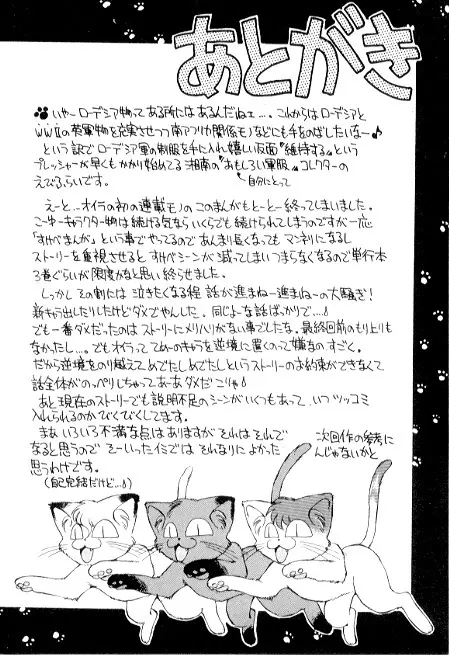 あとがき
いやーローデシア物ってある所にはあるんだねェ…。これからはローデシアと
WWⅡの英軍物を充実させつつ南アフリカ関係モノなどにも手をのばしたいなー♪
という訳でローデシア軍の制服を手に入れ嬉しい仮面〝維持する〟という
プレッシャーが早くもかかり始めてる 湘南の〝おもしろい軍服〟コレクターの
えびふらいです。
自分にとって
えーと…オイラの初の連載モノのこのまんがもとーとー終ってしまいました。
こーゆーキャラクター物は続ける気ならいくらでも続けられてしまうのですが一応
「すけべまんが」という事でやってるのであんまり長くなってもマンネリになるし
ストーリーを重視させると すけべシーンが減ってしまいつまらなくなるので単行本
3巻ぐらいが限度かなと思い終らせました。
しっかし その割には 泣きたくなる程 話が進まねー進まねーの大騒ぎ!
新キャラ出したりしたけどダメでやんした。同じよーな話ばっかりで…♪
でも一番ダメだったのは ストーリーにメリハリがない事でしたな。最終回前のもり上りも
なかったし…。でもオイラって てめーのキャラを逆境に置くのって嫌なの すごく。
だから逆境をのり越えて めでたしめでたしというストーリーのお約束ができなくて
話全体がのっぺりしちゃってあーあ ダメだこりゃ♪
あと現在のストーリーでも説明不足のシーンがいくつもあって いつ ツッコミ
入れられるのか びくびくしてます。
まあ いろいろ不満な点はありますが それはそれで 次回作の参考に
なると思うので そーいったイミでは それなりに よかった んじゃないかと
思うわけです。
(自己完結だけど…♪)